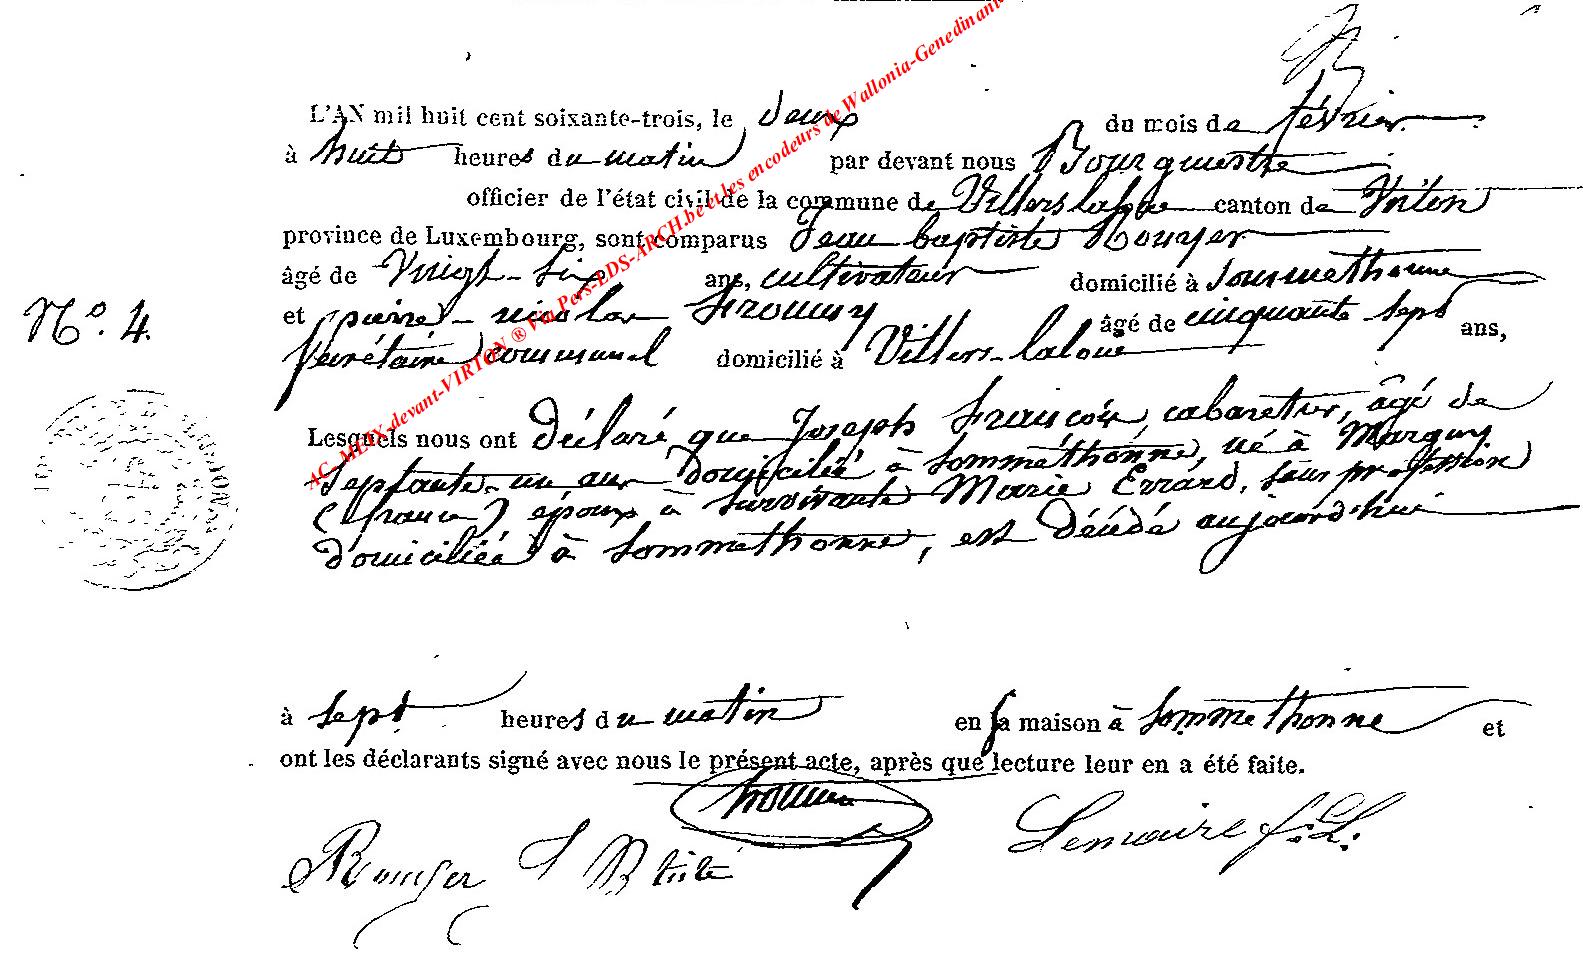 L'AN mil huit cent soixante-trois, le deux du mois de février
à huit heures du matin par devant nous Bourgmestre
officier de l'état civil de la commune de Villers laloue canton de Virton
province de Luxembourg, sont comparus Jean baptiste Rouyer
âgé de Vingt-Six ans, cultivateur domicilié à Sommethonne
et pierre-nicolas âgé de cinquante-sept ans,
Secrétaire communal domicilié à Villers-laloue
N° 4.
Lesquels nous ont déclaré que Joseph François, cabaretier, âgé de
Septante-un ans domicilié à Sommethonne, né à Margny
(france) époux à survivante Marie Evrard, sans profession
domiciliée à Sommethonne, est décédé aujourd'hui
à Sept heures du matin en sa maison à Sommethonne et
ont les déclarants signé avec nous le présent acte, après que lecture leur en a été faite.
Lemaire f.L.
Rouyer J Btiste
AC-MEIX-devant-VIRTON ® Via Pers-EDS-ARCH.be et les encodeurs de Wallonia-Genedinant